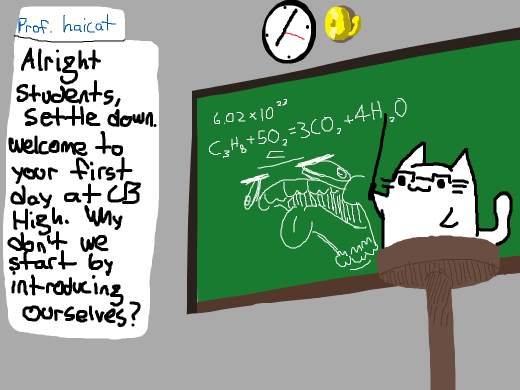 Prof. haicat
Alright
Students,
settle down.
Welcome to
your first
day at CB
High. Why
don't we
start by
introducing
ourselves?
6.02×10²³
C₃H₈+5O₂=3CO₂+4H₂O